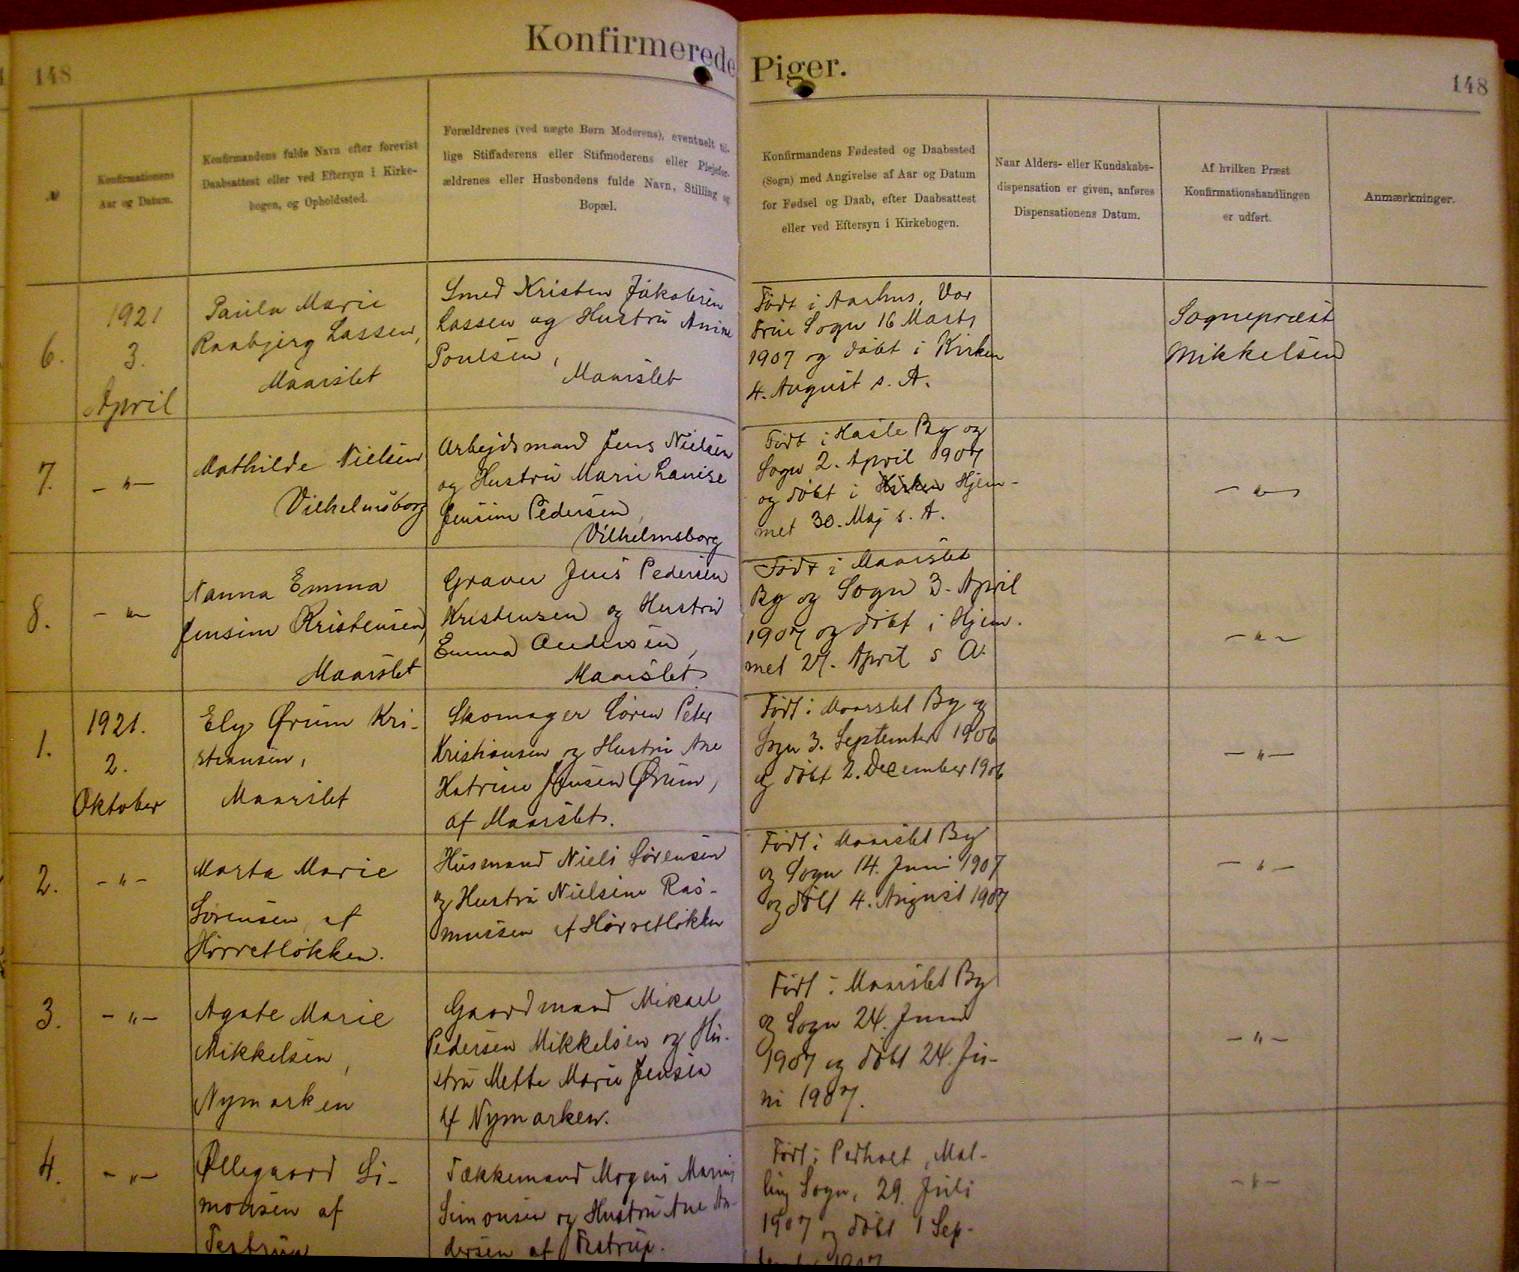 148
Konfirmerede Piger.
148
№
Konfirmationens
Aar og Datum.
Konfirmandens fulde Navn efter forevist
Daabsattest eller ved Eftersyn i Kirke-
bogen, og Opholdssted.
Forældrenes (ved uægte Børn Moderens), eventuelt til-
lige Stiffaderens eller Stifmoderens eller Plejefor-
ældrenes eller Husbondens fulde Navn, Stilling og
Bopæl.
Konfirmandens Fødested og Daabssted
(Sogn) med Angivelse af Aar og Datum
for Fødsel og Daab, efter Daabsattest
eller ved Eftersyn i Kirkebogen.
Naar Alders- eller Kundskabs-
dispensation er given, anføres
Dispensationens Datum.
Af hvilken Præst
Konfirmationshandlingen
er udført.
Anmærkninger.
6.
1921
3.
April
Paula Marie
Raabjerg Lassen,
Maarslet
Smed Kristen Jakobsen
Lassen og Hustru Anine
Poulsen,
Maarslet
Født i Aarhus, Vor
Frue Sogn 16 Marts
1907 og døbt i Kirken
4. August s. A.
Sognepræst
Mikkelsen
7.
— " —
Mathilde Nielsen
Vilhelmsborg
Arbejdsmand Jens Nielsen
og Hustru Marie Louise
Jensine Pedersen,
Vilhelmsborg
Født i Hasle By og
Sogn 2. April 1907
og døbt i Kirken Hjem-
met 30. Maj s. A.
— " —
8.
— " —
Nanna Emma
Jensine Kristensen,
Maarslet
Graver Jens Pedersen
Kristensen og Hustru
Emma Andersen,
Maarslet
Født i Maarslet
By og Sogn 3. April
1907 og døbt i Hjem-
met 27. April s A.
— " —
1.
1921.
2.
Oktober
Ely Ørum Kri-
stiansen,
Maarslet
Skomager Søren Peter
Kristiansen og Hustru Ane
Katrine Jensen Ørum,
af Maarslet.
Født i Maarslet By og
Sogn 3. September 1906
og døbt 2. December 1906
— " —
2.
— " —
Marta Marie
Sørensen af
Hørretløkken.
Husmand Niels Sørensen
og Hustru Nielsine Ras-
mussen af Hørretløkken
Født i Maarslet By
og Sogn 14. Juni 1907
og døbt 4. August 1907
— " —
3.
— " —
Agate Marie
Mikkelsen,
Nymarken
Gaardmand Mikael
Pedersen Mikkelsen og Hu-
stru Mette Marie Jensen
af Nymarken.
Født i Maarslet By
og Sogn 24. Juni
1907 og døbt 24. Ju-
ni 1907.
— " —
4.
— " —
Øllegaard Si-
monsen af
Testrup
Tækkemand Mogens Marius
Simonsen og Hustru Ane An-
dersen af Testrup.
Født i Pedholt, Mal-
ling Sogn, 29. Juli
1907 og døbt 1 Sep-
tember 1907
— " —